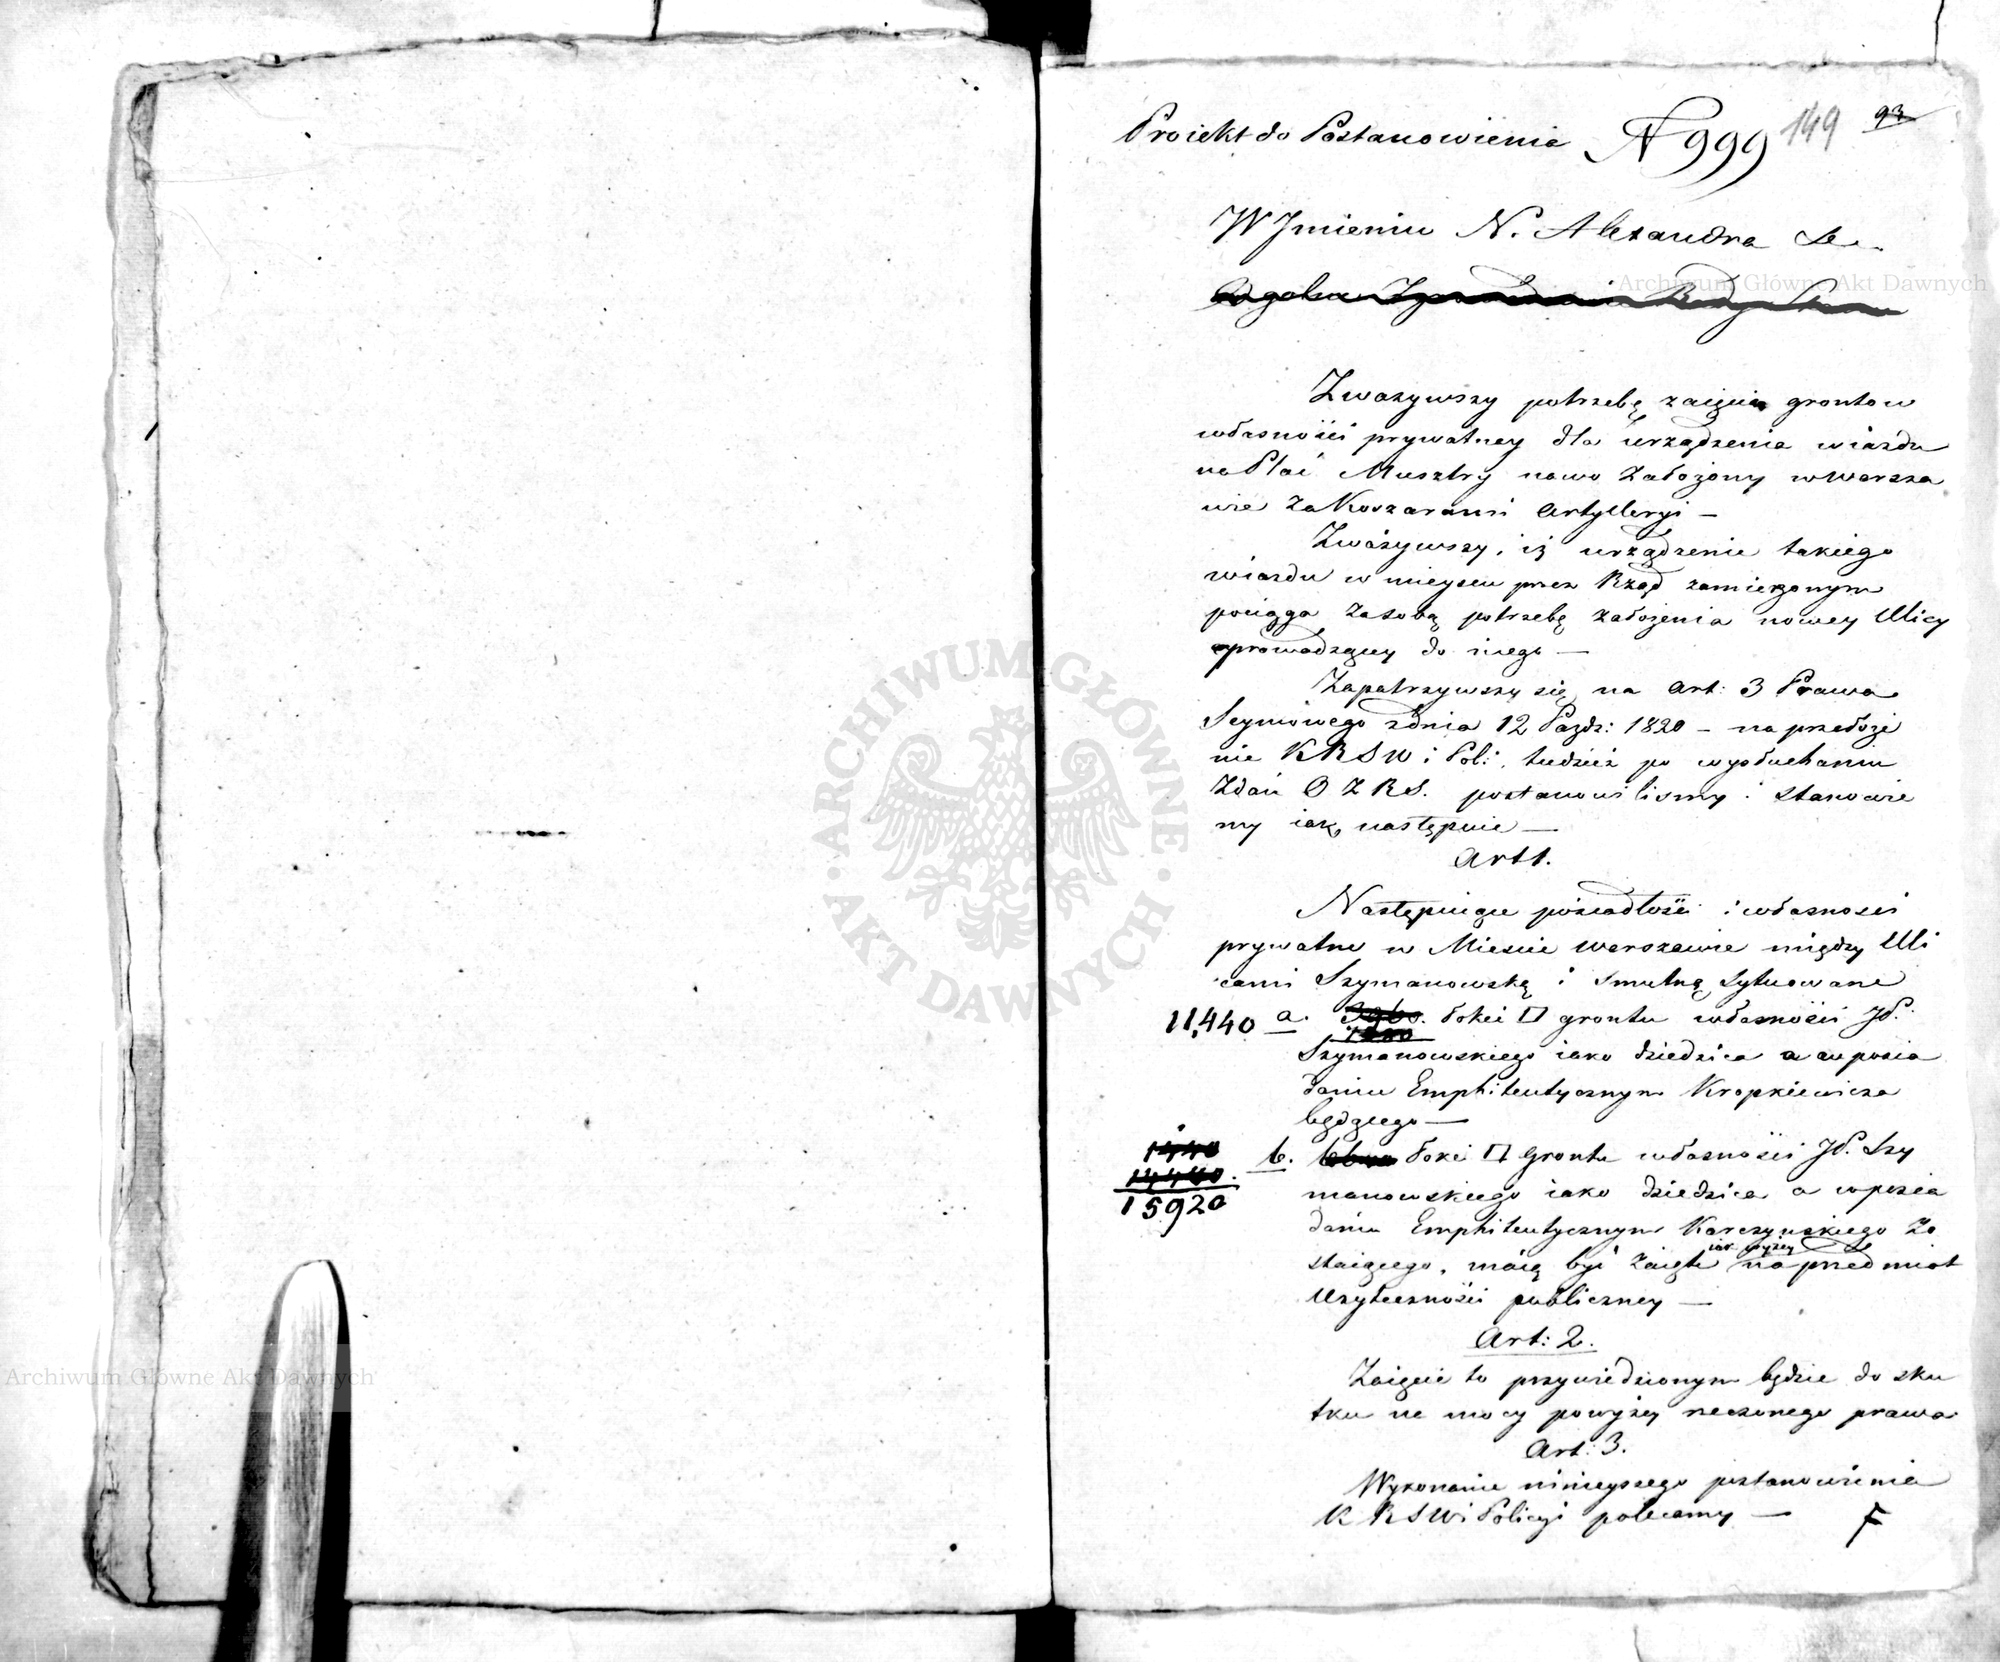 Proiekt do Postanowienia N 999 149 93
W Jmieniu N. Alexandra
Zwazywszy potrzebę zaięcia grontow
własności prywatney dla urządzenia wiazdu
na Plac Musztry nowo założony w Warsza
wie za Koszarami Artylleryi —
Zważywszy, iż urządzenie takiego
wiazdu w mieyscu przez Rząd zamierzonym
pociąga za sobą potrzebę założenia nowey Ulicy
prowadzącey do niego —
Zapatrzywszy się na Art: 3 Prawa
Seymowego z dnia 12 Pazdz: 1820 — na przełoże
nie K R S W i Pol:, tudzież po wysłuchaniu
Zdań O Z R S. postanowilismy i stanowie
my iak następuie —
Art 1.
Następuiące posiadłości i własnosci
prywatne w Miescie Warszawie między Uli
cami Szymanowską i Smutną sytuowane
11,440 a. łokci □ grontu własności JP.
Szymanowskiego iako dziedzica a w posia
daniu Emphiteutycznym Kropkiewicza
będącego —
1440
14,480.
15920
b. łokci □ Grontu własności JP. Szy
manowskiego iako dziedzica a w posia
daniu Emphiteutycznym Karczynskiego zo
staiącego, maią być zaięte iak wyżey na przedmiot
Użyteczności publiczney —
Art: 2.
Zaięcie to przywiedzionym będzie do sku
tku na mocy powyżey rzeczonego prawa
Art: 3.
Wykonanie ninieyszego postanowienia
K R S W i Policyi polecamy —
Archiwum Główne Akt Dawnych
ARCHIWUM GŁÓWNE
AKT DAWNYCH
Archiwum Główne Akt Dawnych